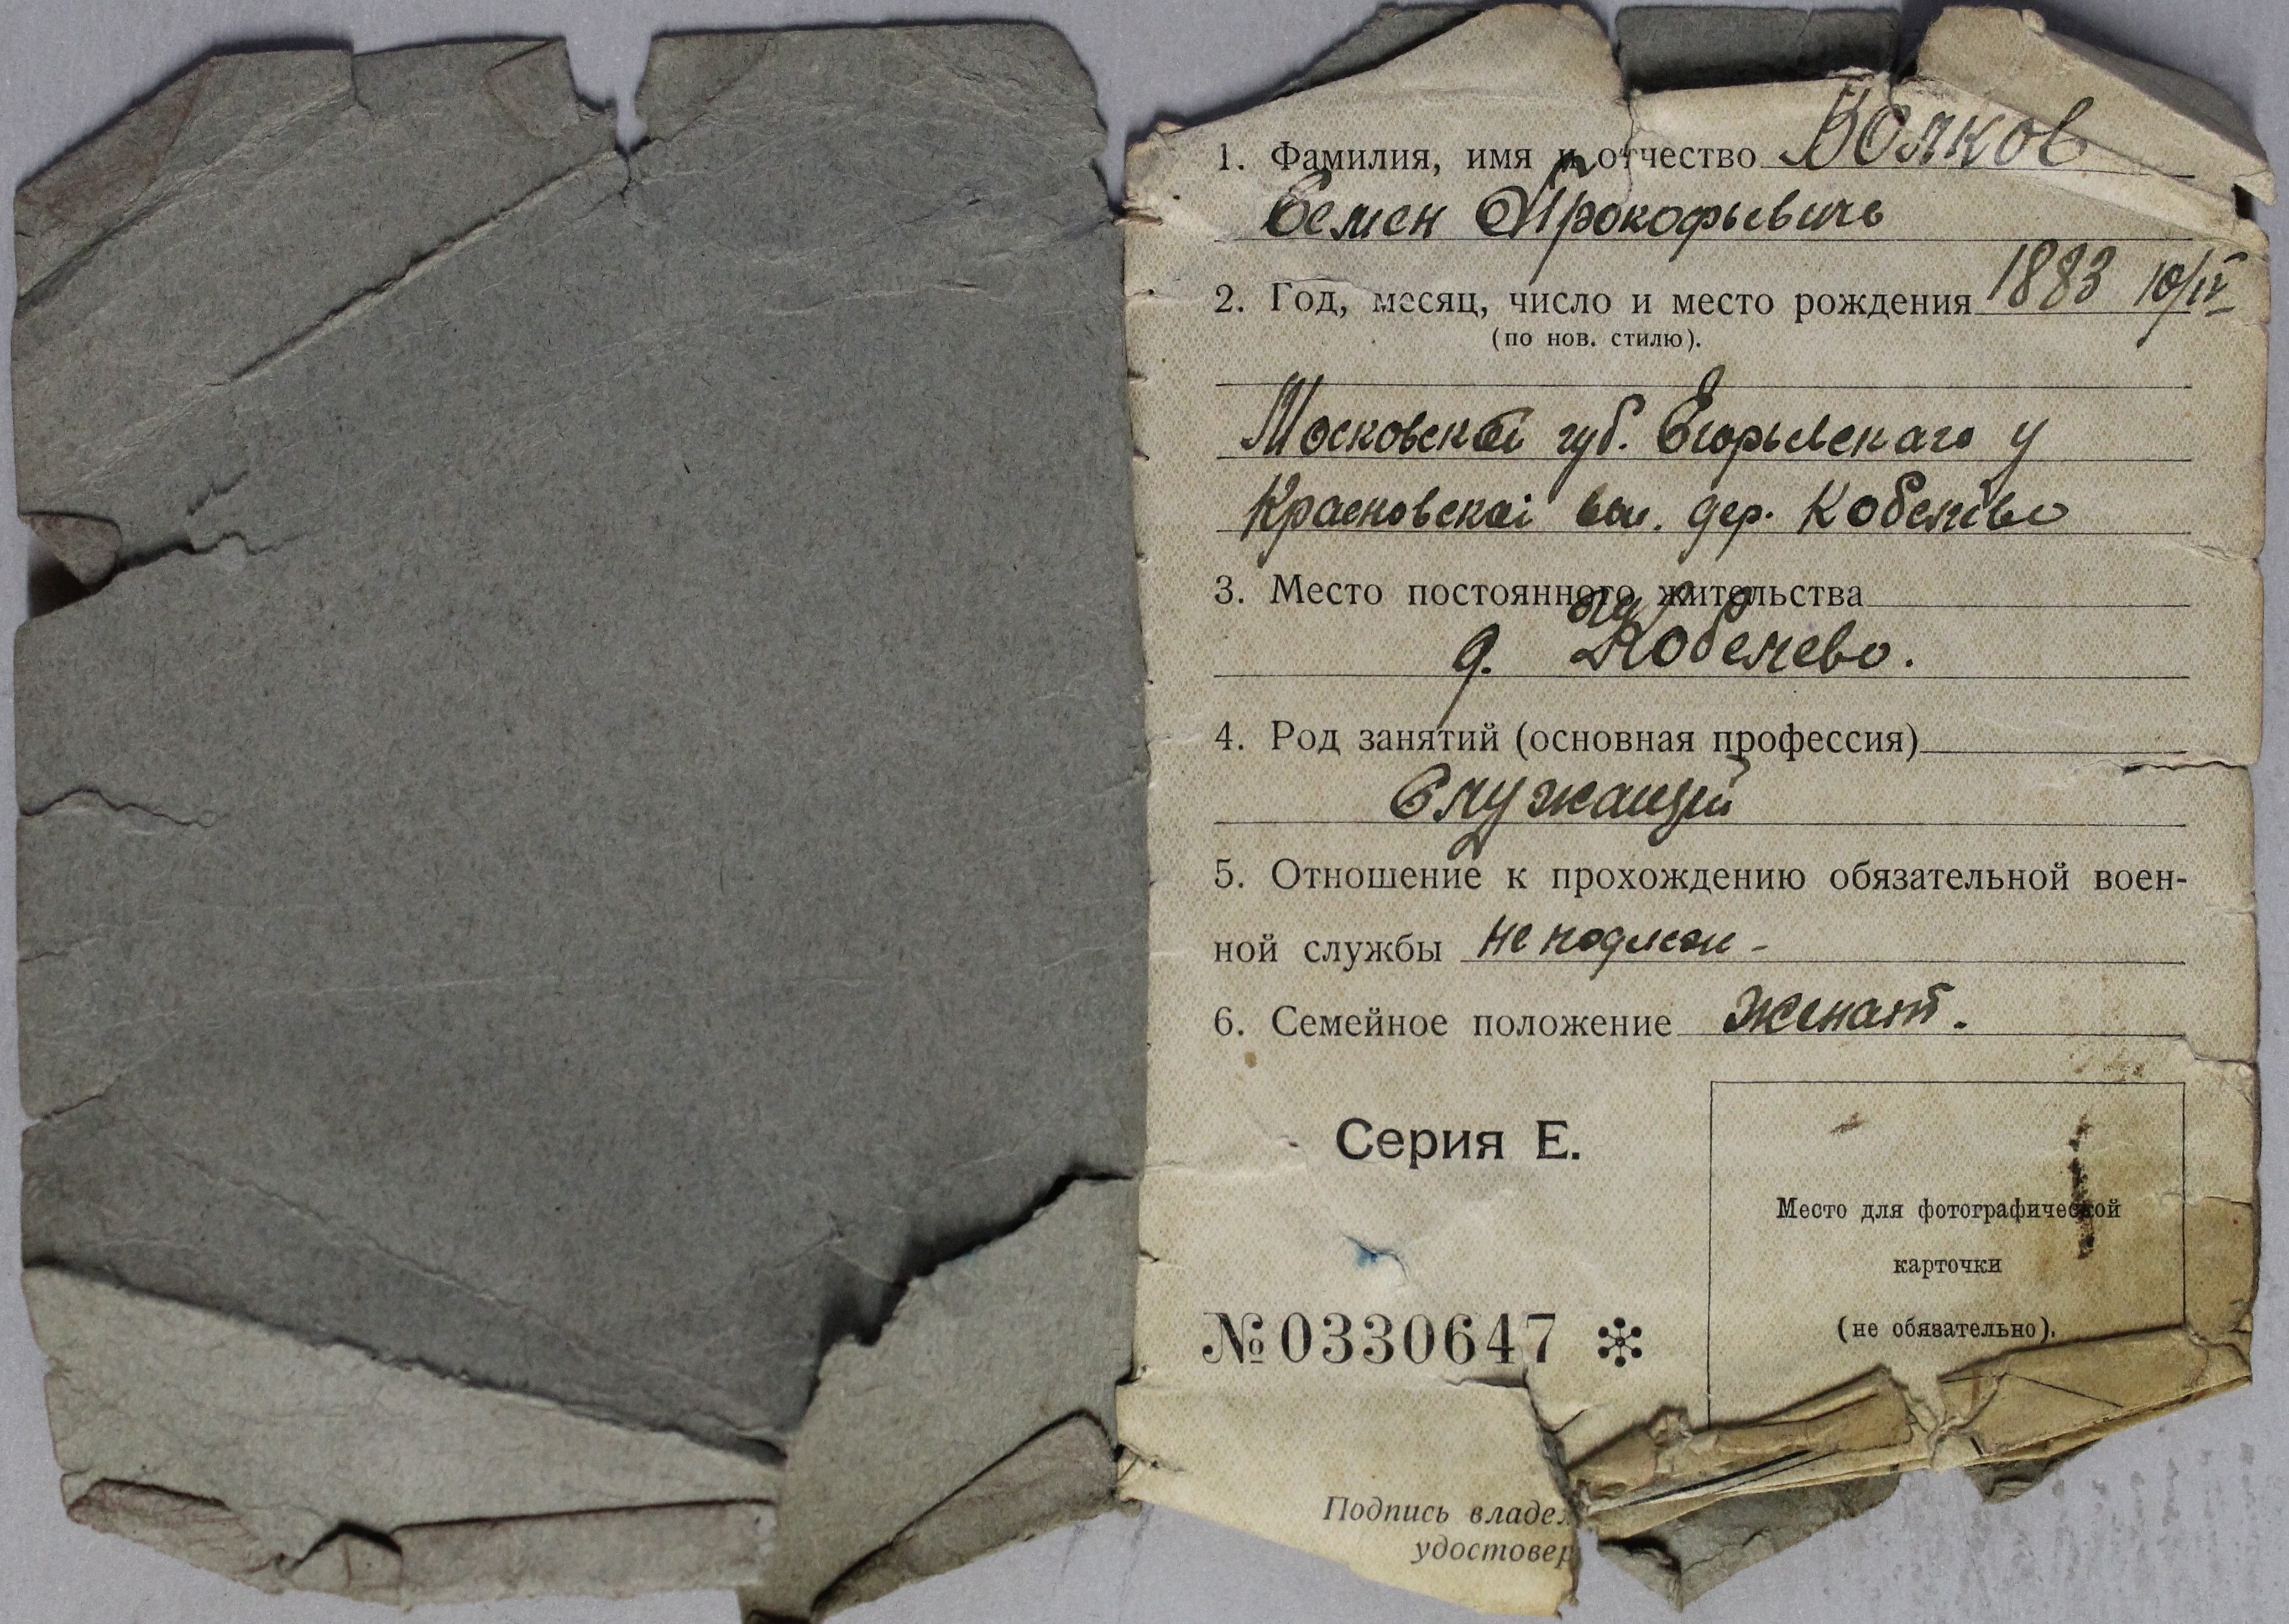 1. Фамилия, имя и отчество Волков
Семен Прокофьевичь
2. Год, месяц, число и место рождения 1883 10/IV
(по нов. стилю).
Московской губ. Егорьевскаго у
Красновской вол. дер. Кобелево
3. Место постоянного жительства
д. Кобелево.
4. Род занятий (основная профессия)
Служащий
5. Отношение к прохождению обязательной воен-
ной службы не подлеж -
6. Семейное положение женат.
Серия Е.
Место для фотографической
карточки
(не обязательно).
№ 0330647
Подпись владел
удостовер